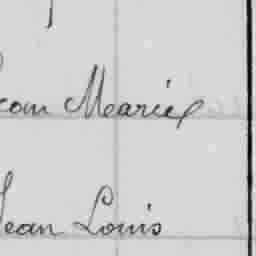 Jean Marie
Jean Louis